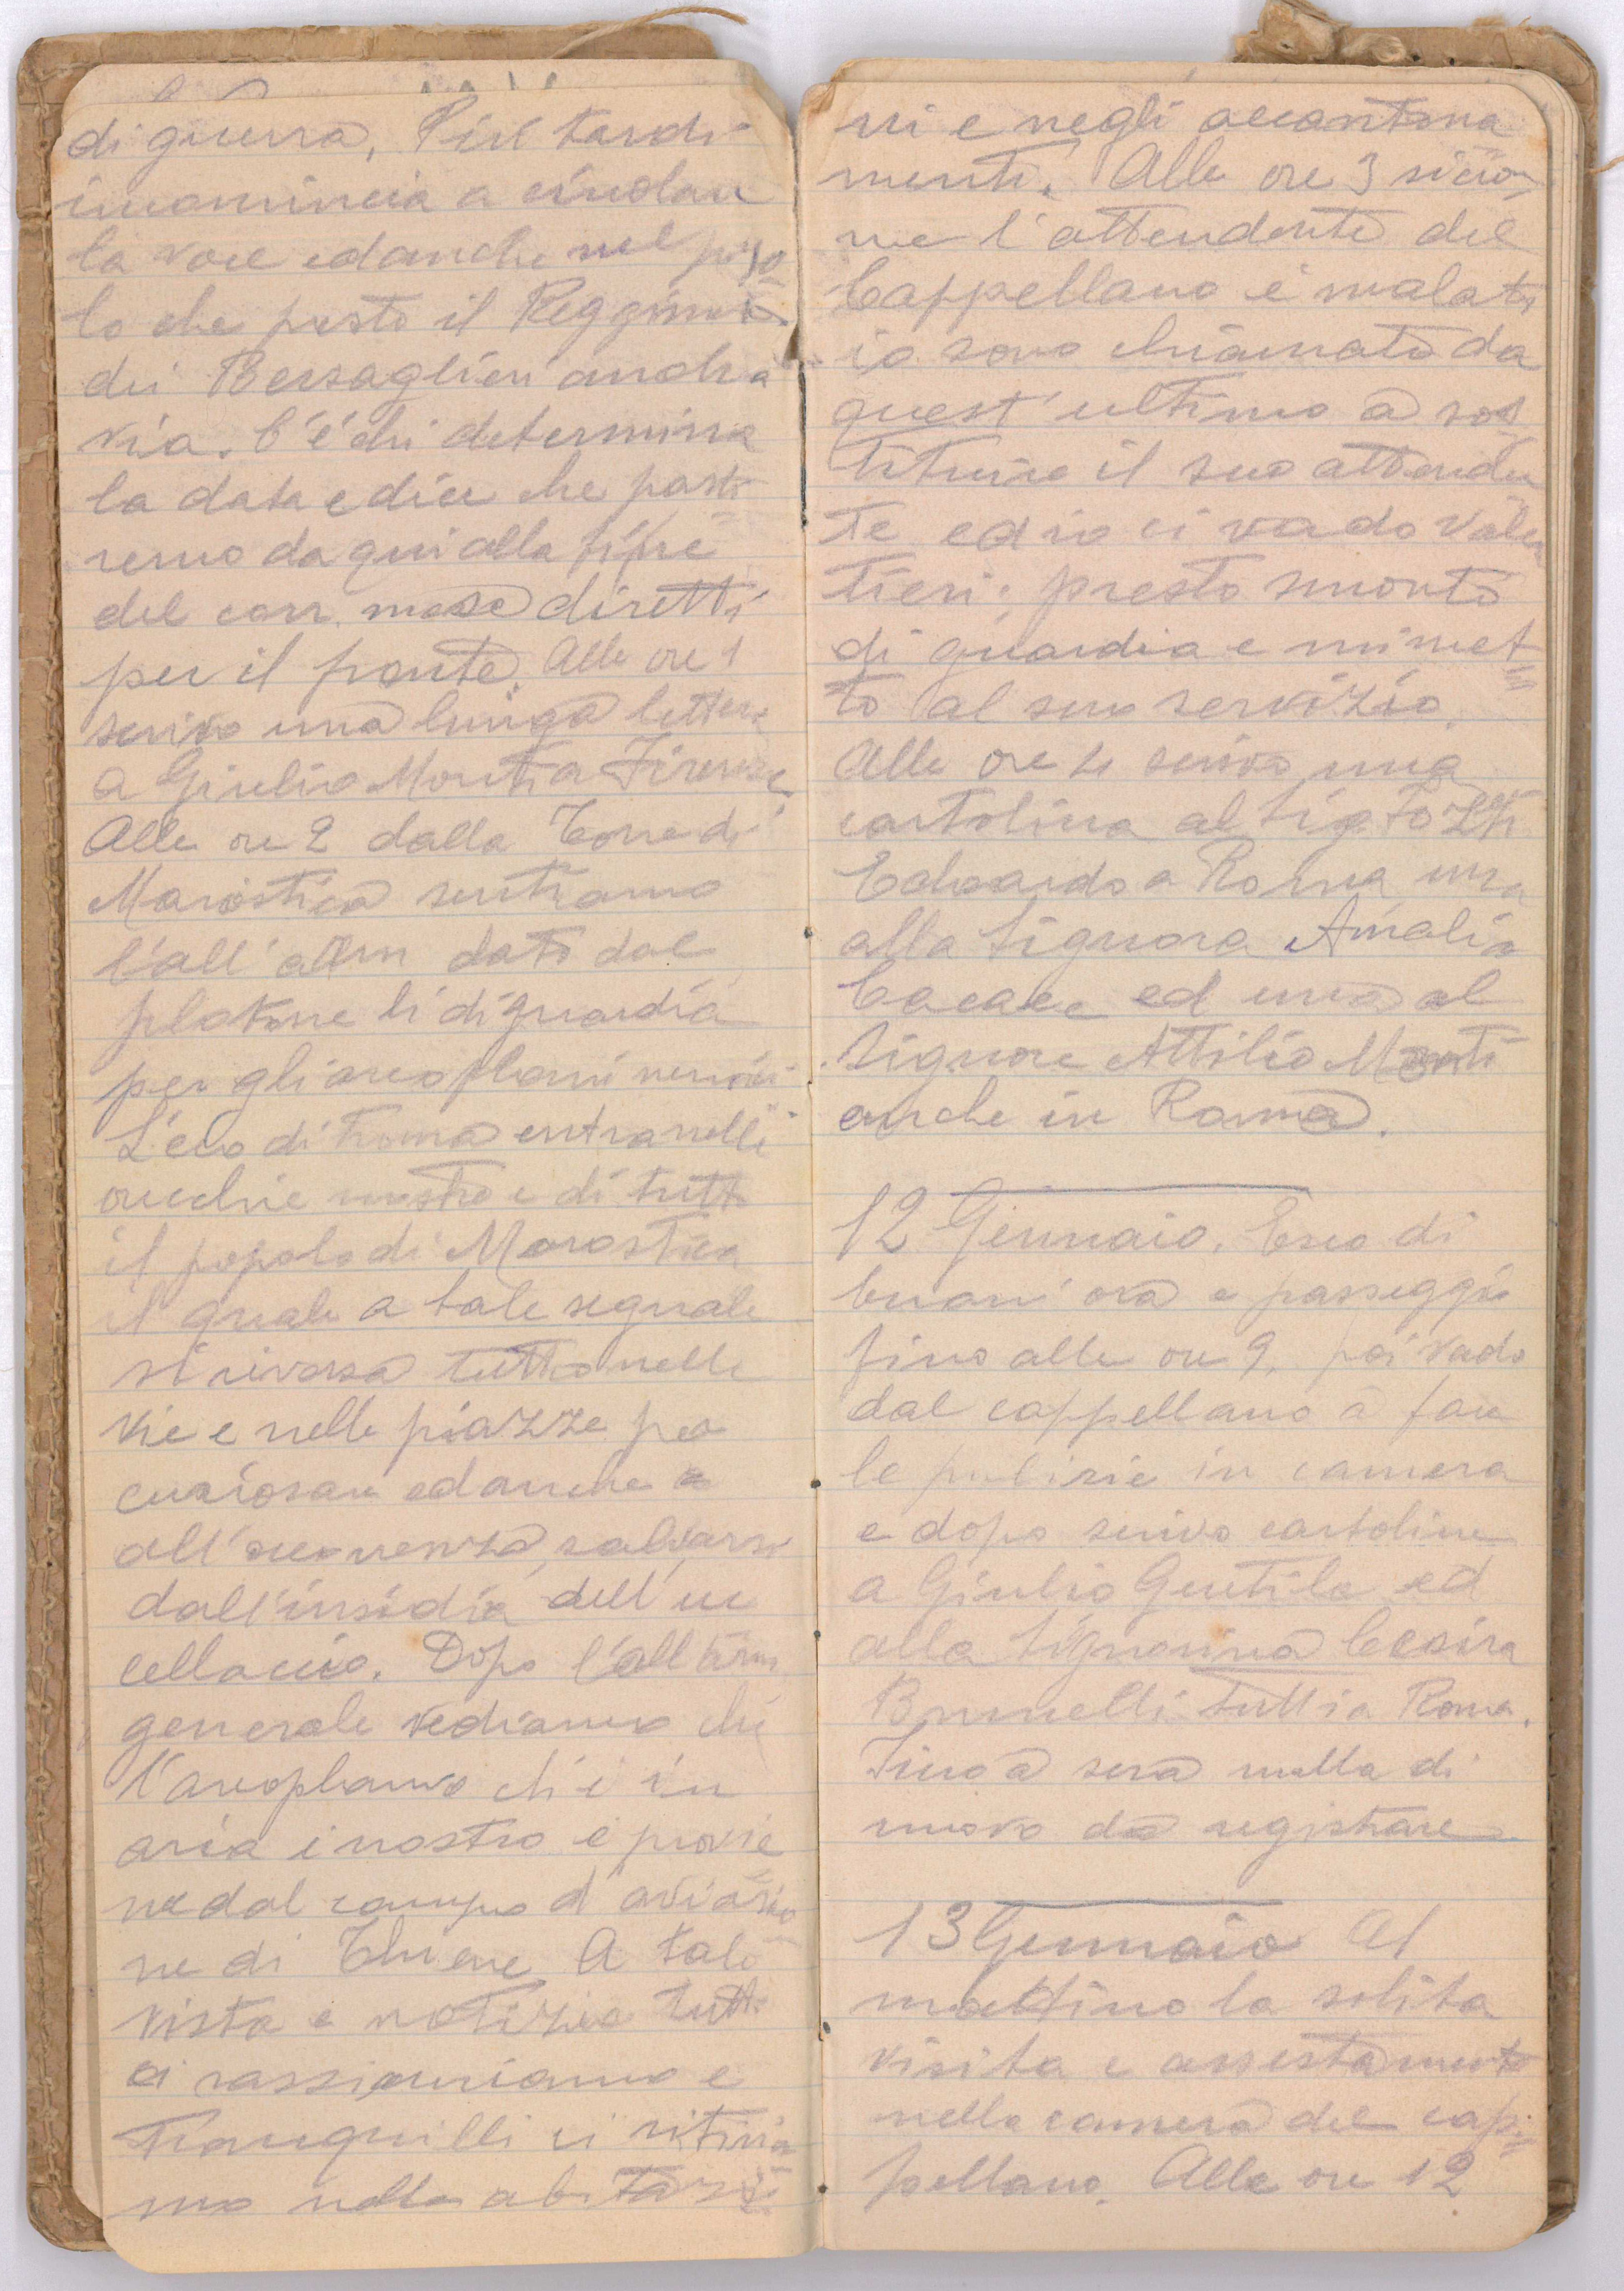 di guerra, Più tardi
incomincia a circolare
la voce ed anche nel popo
lo che presto il Reggim.
dei Bersaglieri andrà
via. C'è chi determina
la data e dice che parti
remo da qui alla fine
del corr. mese diretti
per il fronte. Alle ore 1
scrivo una lunga lettera
a Giulio Monti a Firenze.
Alle ore 2 dalla Torre di
Marostica sentiamo
l'all'allarm dato dal
plotone li di guardia
per gli areoplani nemici.
L'eco di tromba entra nelle
orecchie nostre e di tutto
il popolo di Marostica
il quale a tale segnale
si riversa tutto nelle
vie e nelle piazze per
curiosare ed anche
all'occorrenza salvarsi
dall'insidia dell'uc
cellaccio. Dopo l'allarm
generale vediamo che
l'areoplano ch'è in
aria è nostro e provie
ne dal campo d'aviazio
ne di Thiene A tale
vista e notizia tutti
ci rassicuriamo e
tranquilli ci ritiria
mo nelle abitazio
ni e negli accantona
menti. Alle ore 3 sicco
me l'attendente del
Cappellano è malato
io sono chiamato da
quest'ultimo a sos
tituire il suo attenden
te ed io ci vado volen
tieri; presto smonto
di guardia e mi met
to al suo servizio.
Alle ore 4 scrivo una
cartolina al Sig. Tozzi
Edoardo a Roma, una
alla Signora Amalia
Cacace ed una al
Signore Attilio Monti
anche in Roma.
12 Gennaio. Esco di
buon'ora e passeggio
fino alle ore 9, poi vado
dal cappellano a fare
le pulizie in camera
e dopo scrivo cartoline
a Giulio Gentile ed
alla Signorina Cesira
Brunelli tutti a Roma.
Fino a sera nulla di
nuovo da registrare
13 Gennaio Al
mattino la solita
visita e assestamento
nella camera del cap
pellano. Alle ore 12